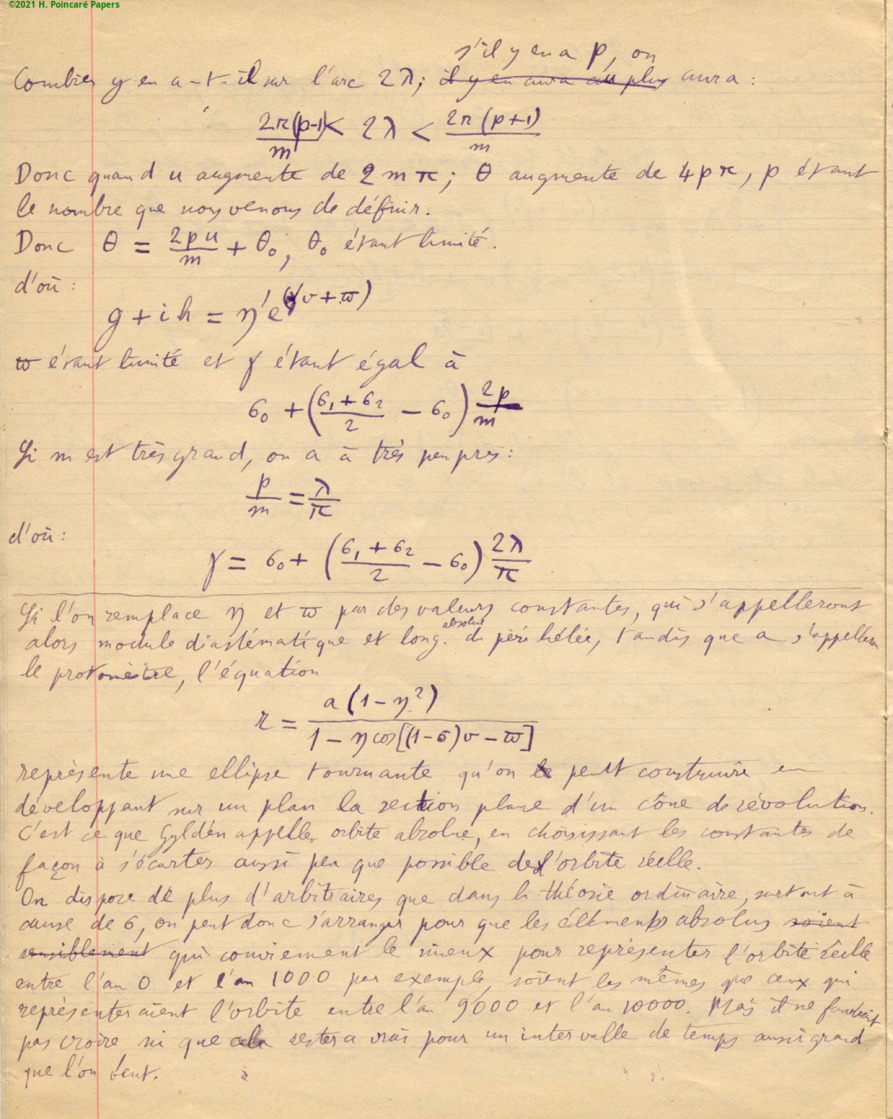 ©2021 H. Poincaré Papers
s'il y en a p, on
Combien y en a-t-il sur l'arc 2λ; il y en aura au plus aura :
2π(p-1)/m < 2λ < 2π(p+1)/m
Donc quand u augmente de 2mπ; θ augmente de 4pπ, p étant
le nombre que nous venons de définir.
Donc θ = 2pu/m + θ₀, θ₀ étant limité.
d'où :
g + ih = η'e^(γv + ϖ)
ϖ étant limité et γ étant égal à
σ₀ + ((σ₁ + σ₂)/2 − σ₀) 2p/m
Si m est très grand, on a à très peu près :
p/m = λ/π
d'où :
γ = σ₀ + ((σ₁ + σ₂)/2 − σ₀) 2λ/π
Si l'on remplace η et ϖ par des valeurs constantes, qui s'appelleront
absolue
alors module diastématique et long. du périhélie, tandis que a s'appellera
le protomètre, l'équation
r = a(1−η²)/(1−η cos[(1−σ)v − ϖ])
représente une ellipse tournante qu'on peut construire en
développant sur un plan la section plane d'un cône de révolution.
C'est ce que Gyldén appelle orbite absolue, en choisissant les constantes de
façon à s'écarter aussi peu que possible de l'orbite réelle.
On dispose de plus d'arbitraires que dans la théorie ordinaire, surtout à
cause de σ, on peut donc s'arranger pour que les éléments absolus soient
sensiblement qui conviennent le mieux pour représenter l'orbite réelle
entre l'an 0 et l'an 1000 par exemple, soient les mêmes que ceux qui
représenteraient l'orbite entre l'an 9000 et l'an 10000. Mais il ne faudrait
pas croire ni que cela restera vrai pour un intervalle de temps aussi grand
que l'on veut.